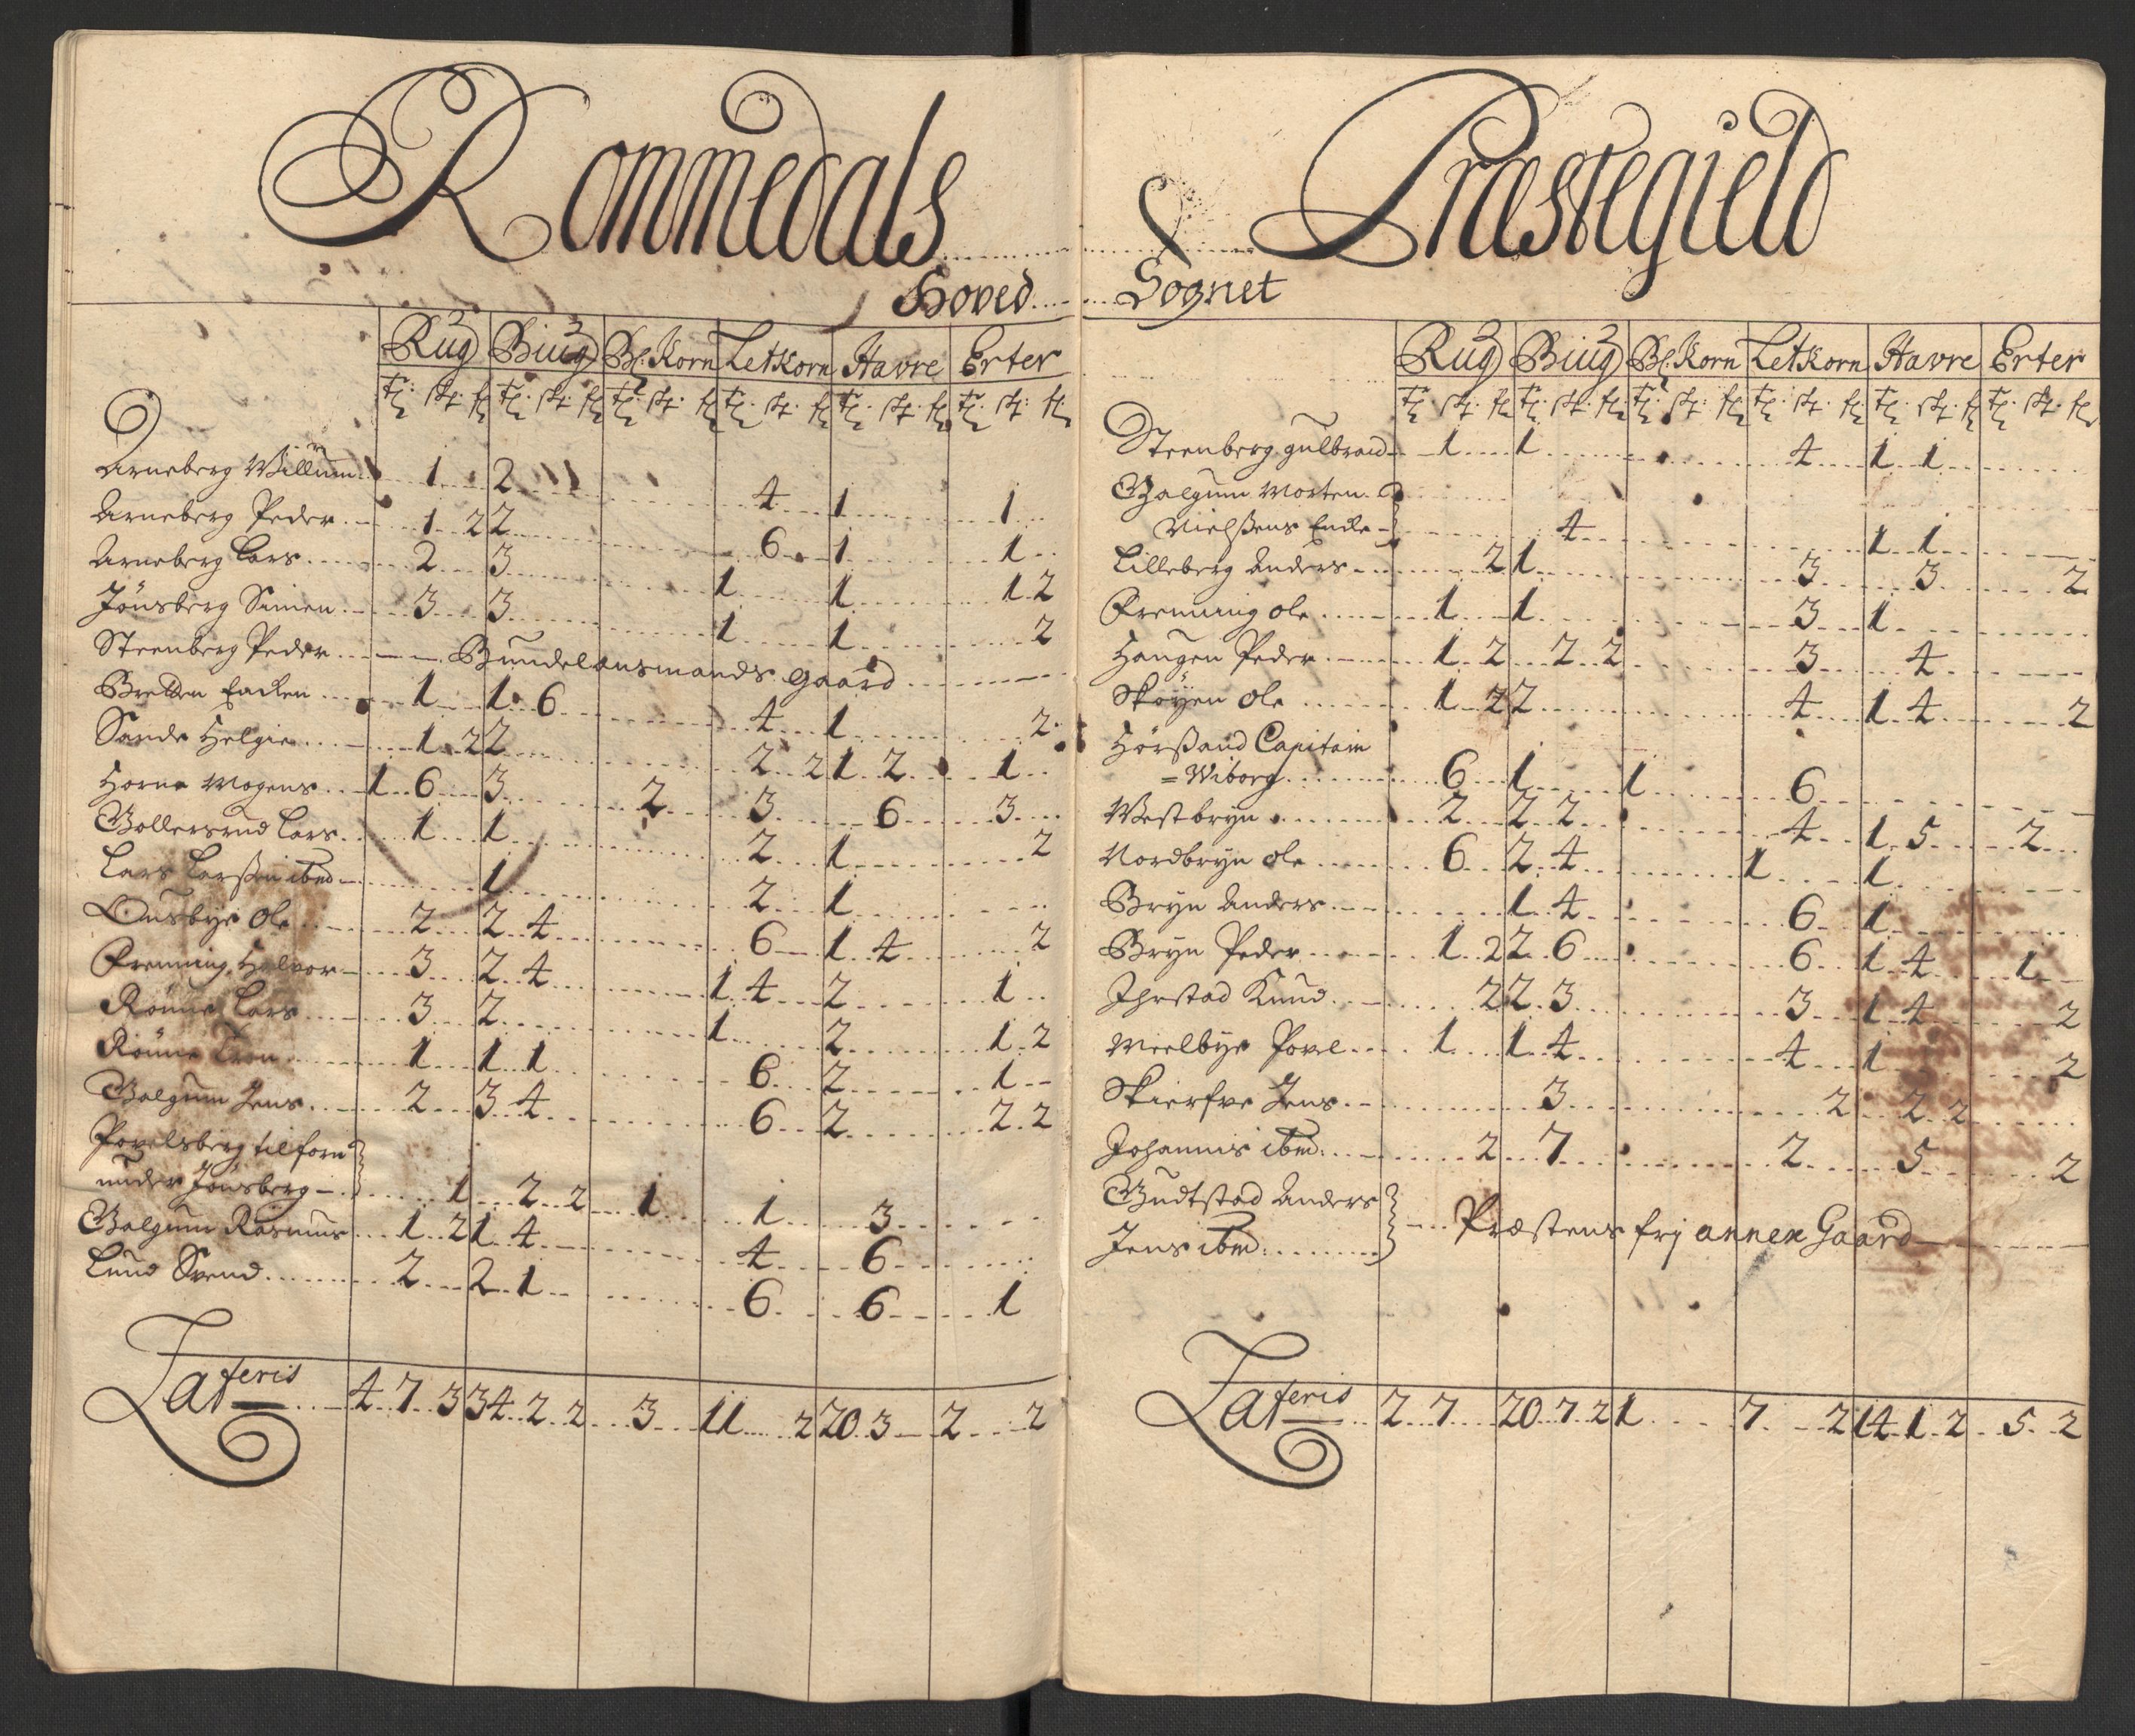 Rommedals
Hoved
Rug Biug Bl. Korn Letkorn Havre Erter
Arneberg Willum 1 2 4 1 1
Arneberg Peder 1 2 2 6 1 1
Arneberg Lars 2 3 1 1 1 2
Jönsberg Simen 3 3 1 1 2
Steenberg Peder Bundelænsmands gaard
1 1 6 4 1 2
Sande Helgie 1 2 2 2 2 1 2 1
Horne Mogens 1 6 3 2 3 6 3
Bollersrud Lars 1 1 2 1 2
Lars Larßen ibm 1 2 1
Ousbye Ole 2 2 4 6 1 4 2
Frenning Halvor 3 2 4 1 4 2 1
Rönne Lars 3 2 1 2 1 2
Rönne 1 1 1 6 2 1
Galgum Jens 2 3 4 6 2 2 2
Povelsberg tilforn
under Jönsberg 1 2 2 1 1 3
Galgum Rasmus 1 2 1 4 4 6
Lund Svend 2 2 1 6 6 1
Lateris 4 7 3 34 2 2 3 11 2 20 3 2 2
Præstegield
Sognet
Rug Biug Bl. Korn Letkorn Havre Erter
Steenberg gulbrand 1 1 4 1 1
Galgum Morten
Nielßens Encke 4 1 1
Lilleberg Anders 2 1 3 3 2
Frenning ole 1 1 3 1
Haugen Peder 1 2 2 2 3 4
Skøyen Ole 1 2 2 4 1 4 2
Hörsand Capitain
=Wiborg 6 1 1 6
Westbryn 2 2 2 4 1 5 2
Nordbryn ole 6 2 4 1 1
Bryn Anders 1 4 6 1
Bryn Peder 1 2 2 6 6 1 4 1
Ihrstad Knud 2 2 3 3 1 4 2
Mielbye Povel 1 1 4 4 1 2
Skierfve Jens 3 2 2 2
Johannis ibm 2 7 2 5 2
Gudtstad Anders
Jens ibm Præstens frj annex Gaard
Lateris 2 7 20 7 2 1 7 2 14 1 2 5 2